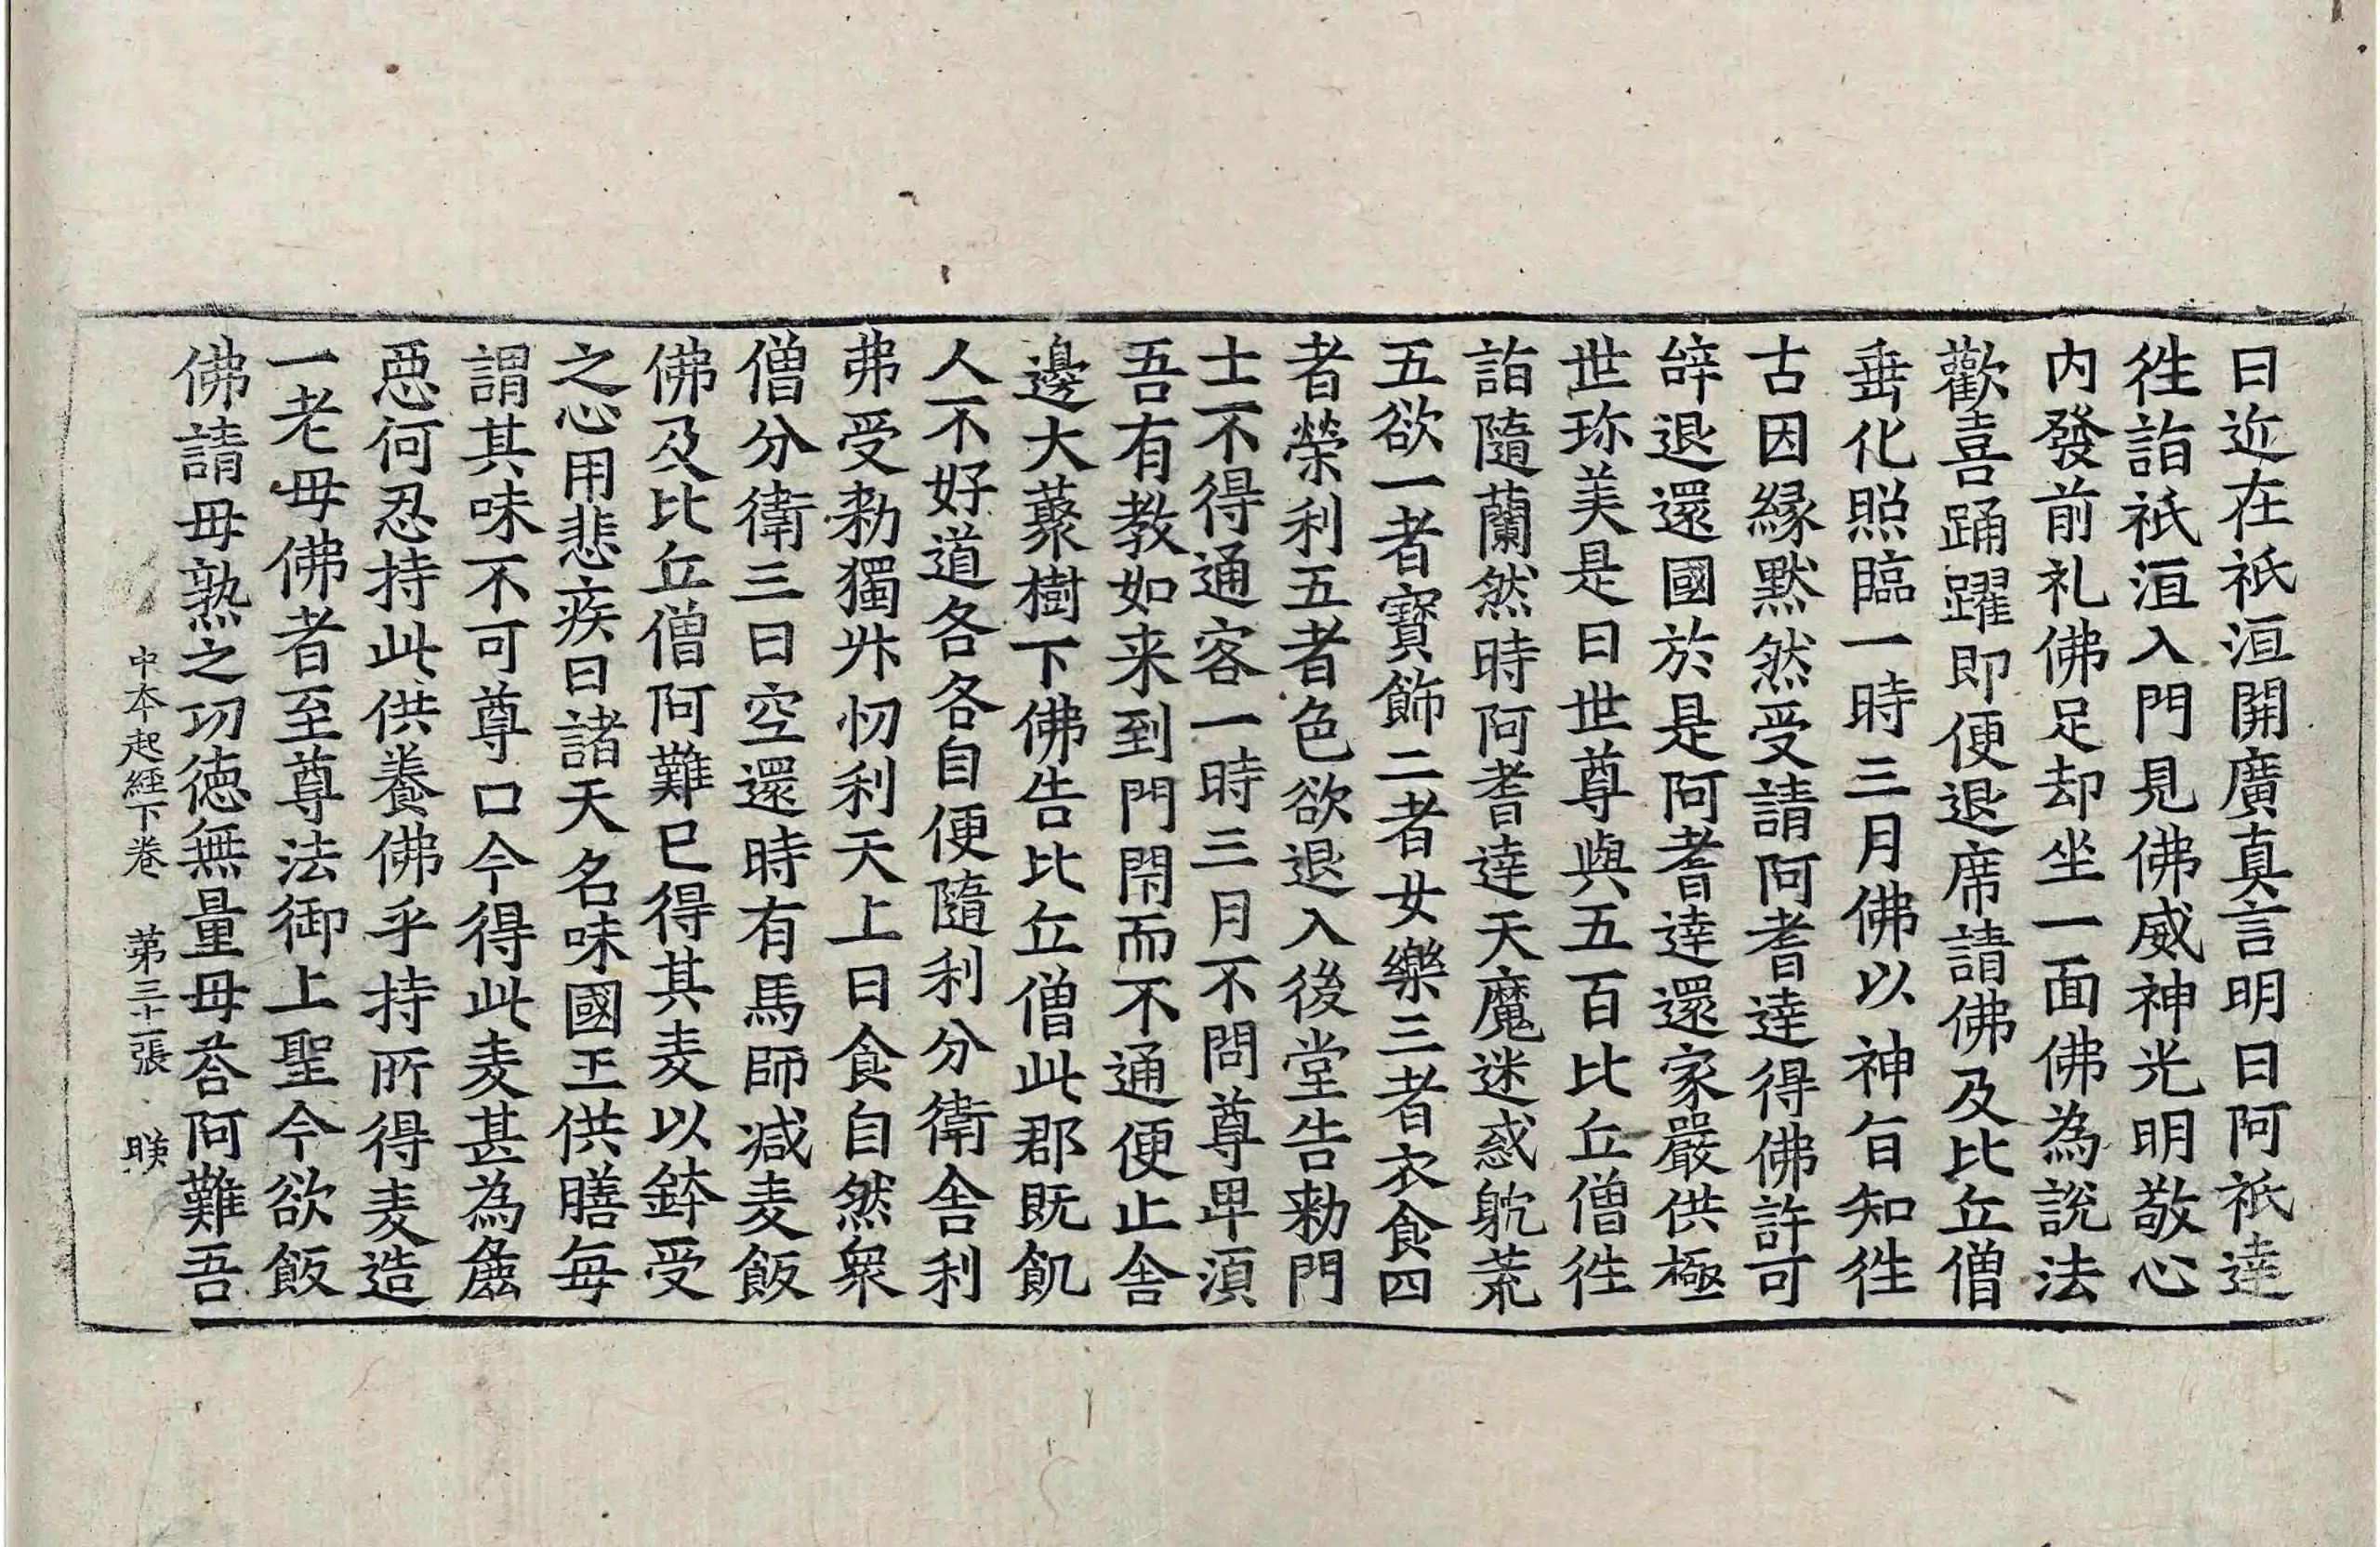 曰近在祇洹開廣真言明日阿祇達
徃詣祇洹入門見佛威神光明敬心
内發前礼佛足却坐一面佛為說法
歡喜踊躍即便退席請佛及比丘僧
垂化照臨一時三月佛以神旨知徃
古因緣默然受請阿耆達得佛許可
辞退還國於是阿耆達還家嚴供極
世珎美是日世尊與五百比丘僧徃
詣隨蘭然時阿耆達天魔迷惑躭荒
五欲一者寶飾二者女樂三者衣食四
者榮利五者色欲退入後堂告勑門
士不得通客一時三月不問尊卑湏
吾有教如来到門閇而不通便止舍
邊大藂樹下佛告比丘僧此郡既飢
人不好道各各自便隨利分衛舍利
弗受勑獨昇忉利天上日食自然衆
僧分衛三日空還時有馬師減麦飯
佛及比丘僧阿難已得其麦以鉢受
之心用悲疾曰諸天名味國王供膳每
謂其味不可尊口今得此麦甚為麁
惡何忍持此供養佛乎持所得麦造
一老母佛者至尊法御上聖今欲飯
佛請母熟之功德無量母荅阿難吾
中本起經下卷　第三十一張